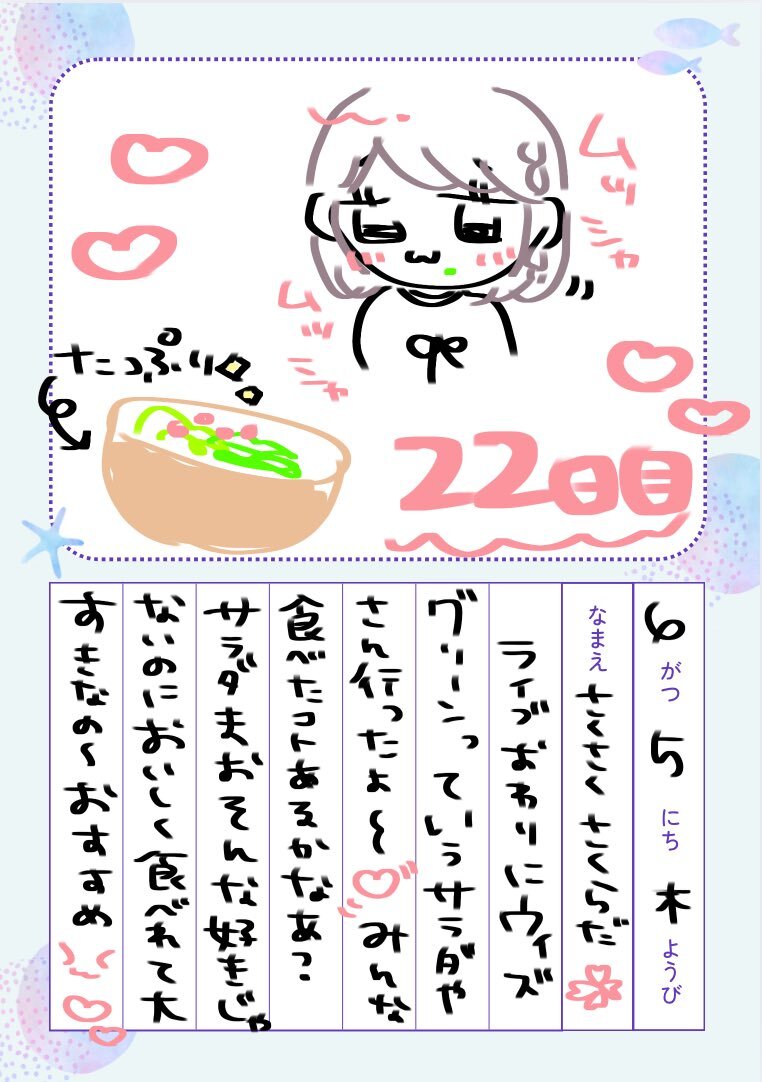 ムッシャ
ムッシャ
たっぷり
22日目
6がつ5にち木ようび
なまえ さくさくさくらだ
ライブおわりにウィズ
グリーンっていうサラダや
さん行ったよ〜みんな
食べたコトあるかなあ?
サラダまあそんな好きじゃ
ないのにおいしく食べれて大
すきなの〜おすすめ